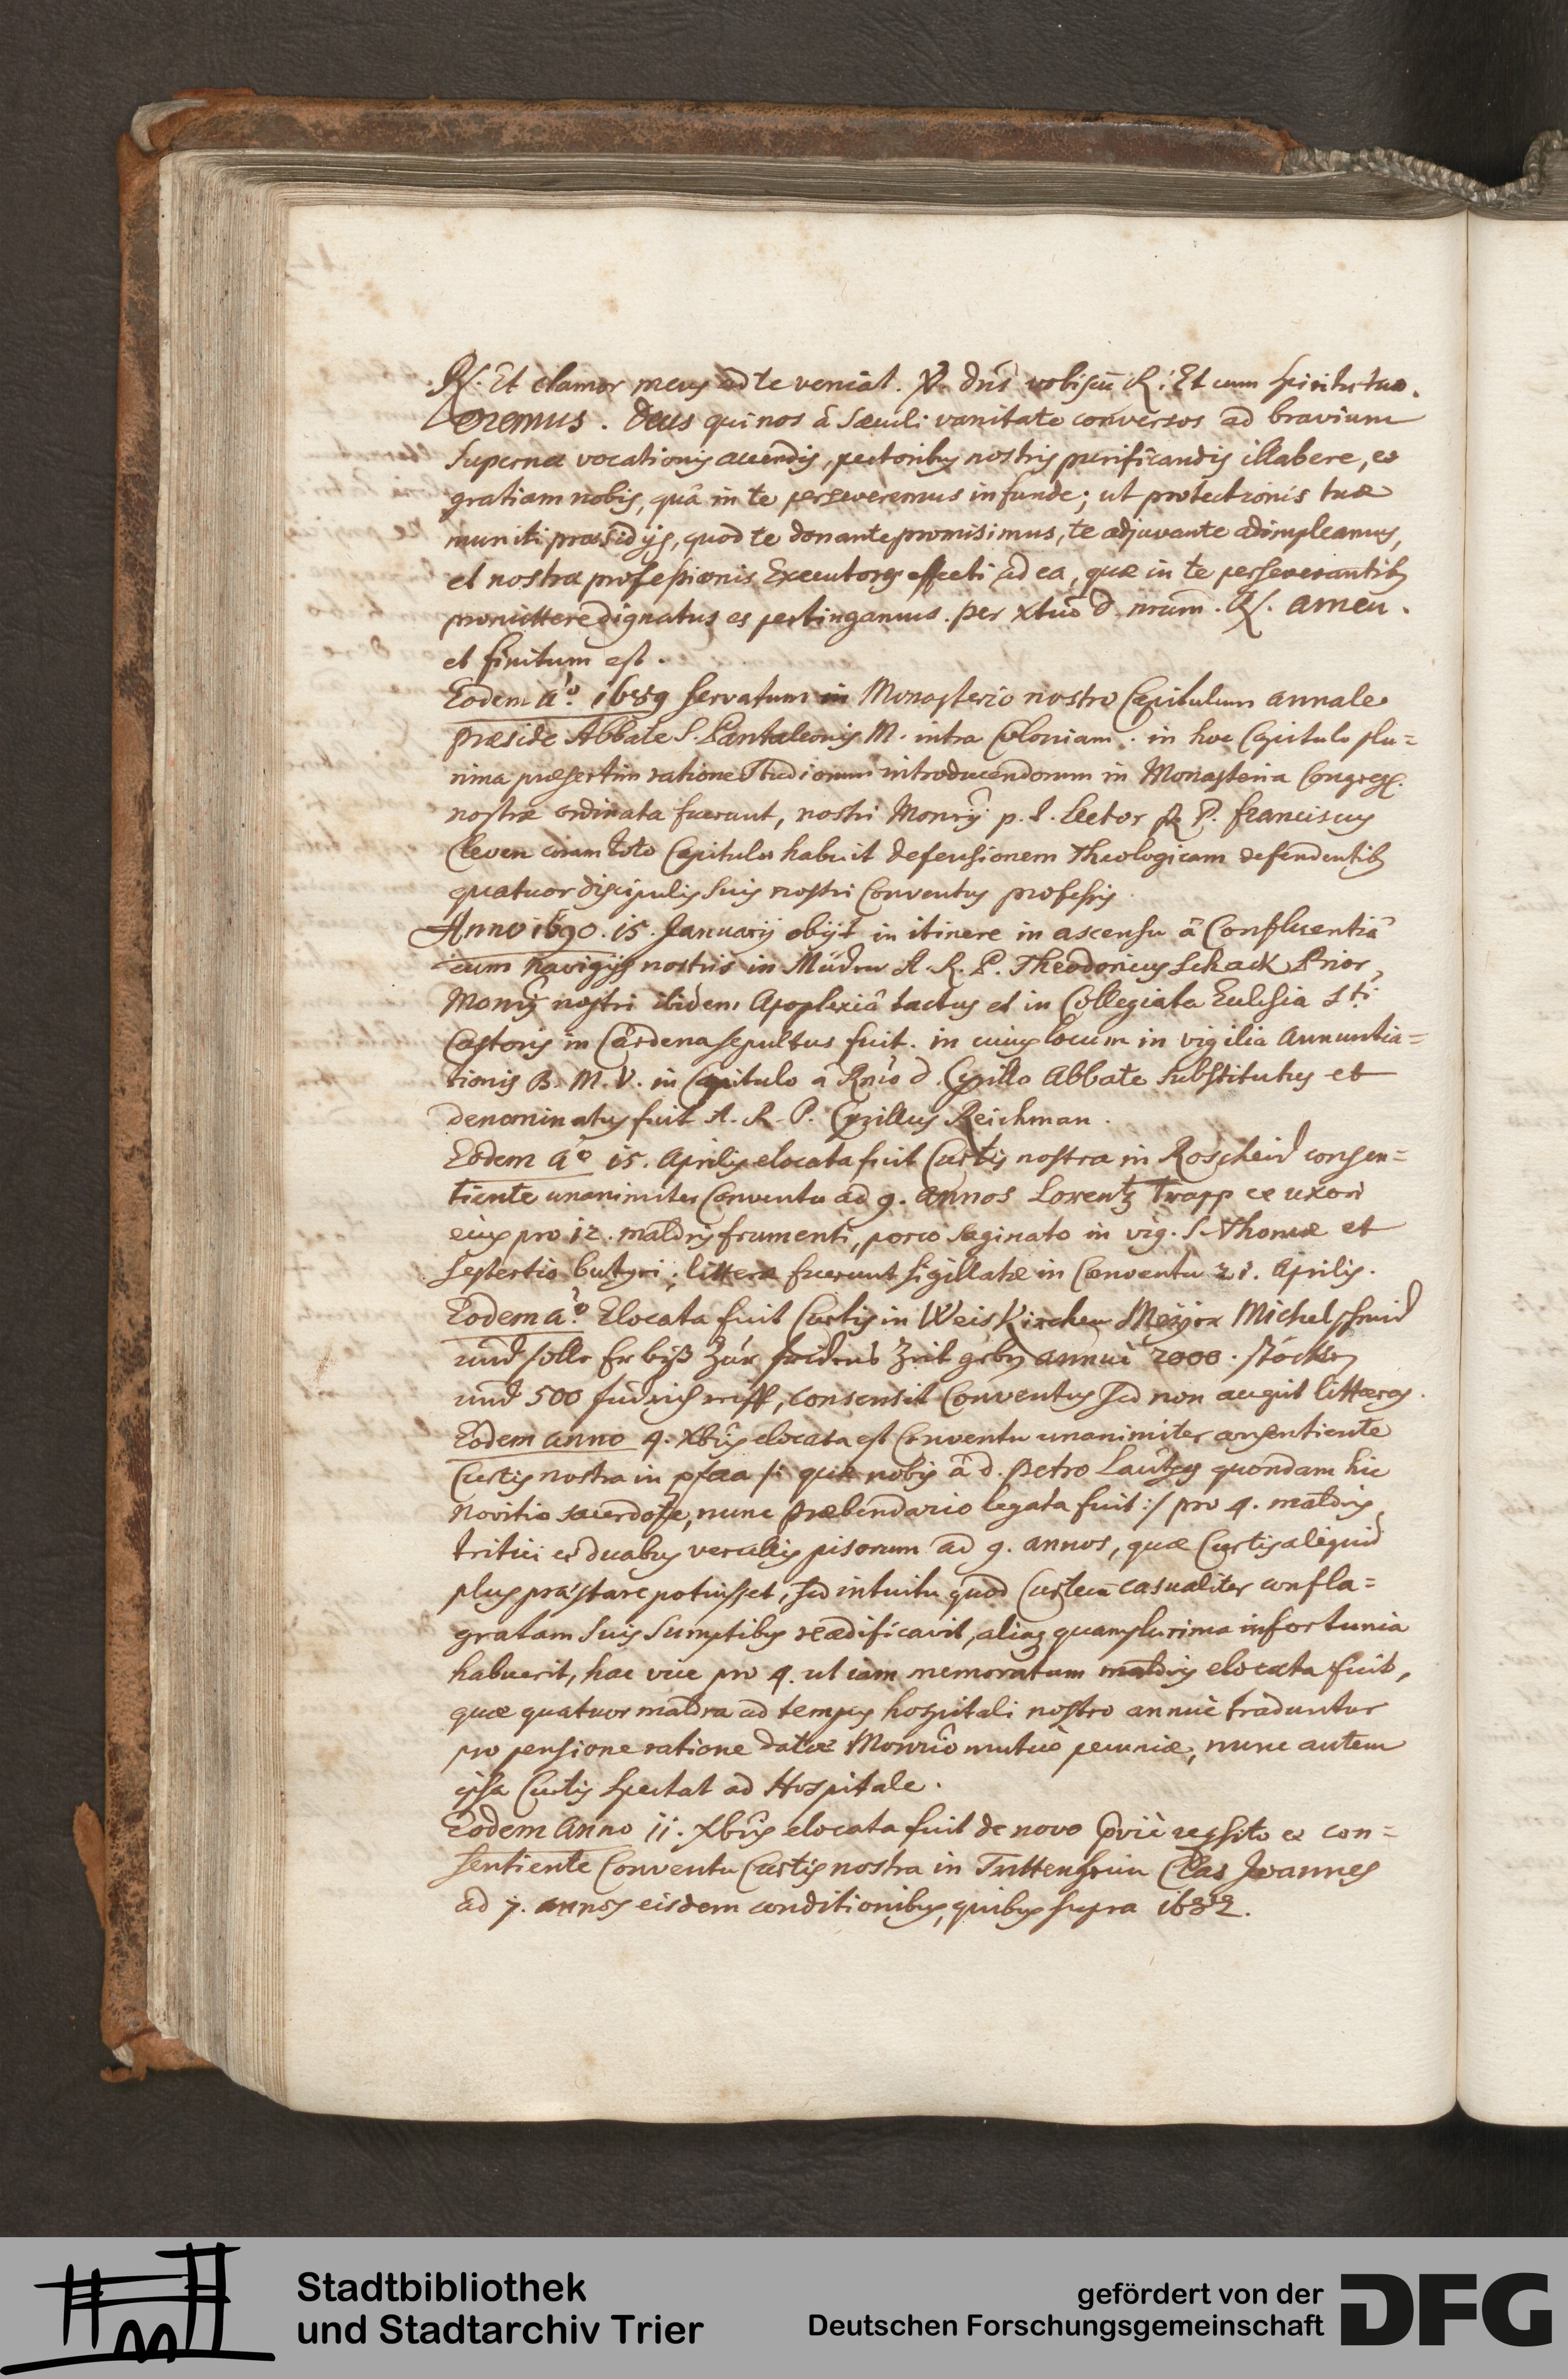 R/. Et clamor meus ad te veniat. V. Dn̄s vobiscū R: Et cum spiritu tuo.
Oremus. Deus qui nos â Saeculi vanitate conversos ad bravium
Supernae vocationis accendis, pectoribus nostris purificandis illabere, et
gratiam nobis, quâ in te perseveremus infunde; ut protectionis tuae
muniti praesidijs, quod te donante promisimus, te adjuvante adimpleamus,
et nostrae professionis Executores effecti ad ea, quae in te perseverantib9
promittere dignatus es pertingamus. per xtum̄ d. nrum̄. R/. amen.
et finitum est.
Eodem aº. 1689 servatum in Monasterio nostro Capitulum annale
praeside Abbate S. Pantaleonis M. intra Coloniam. in hoc Capitulo plu=
rima praesertim ratione Studiorum introducendorum in Monasteria Congreg.
nostrae ordinata fuerunt, nostri Monrij p. t. Lector R. P. franciscus
Cleven coram toto Capitulo habuit defensionem Theologicam defendentib9
quatuor discipulis suis nostri Conventus professis.
Anno 1690. 15. Januarij obijt in itinere in ascensu â Confluentiâ
cum navigijs nostris in Müden A. R. P. Theodoricus Schack Prior
Monrij nostri ibidem Apoplexiâ tactus et in Collegiata Ecclesia Sti
Castoris in Cardena sepultus fuit. in cuius locum in vigilia Annuntia=
tionis B. M. V. in Capitulo â Rmo d. Cyrillo Abbate substitutus et
denominatus fuit A. R. P. Cyrillus Reichman.
Eodem aº 15. Aprilis elocata fuit Curtis nostra in Roscheid consen=
tiente unanimiter Conventu ad 9. annos Lorentz Trapp et uxori
eius pro 12. maldris frumenti, porco saginato in vig. S. Thomae et
sestertio butyri; litterae fuerunt sigillatae in Conventu 21. Aprilis.
Eodem aº. Elocata fuit Curtis in Weiskirchen Meyer Michel Schmid
und solle Er biß zur fridens Zeit geben annuè 2000. stöcken
und 500 fudrich reiff, consensit Conventus sed non accepit litteras.
Eodem anno 4. Xbris elocata est Conventu unanimiter consentiente
Curtis nostra in /: quae nobis â d. Petro Lautzen quondam hic
Novitio sacerdote, nunc praebendario legata fuit :/ pro 4. maldris
tritici et duabus pisorum ad 9. annos, quae Curtis aliquid
plus praestare potuisset, sed intuitu quod Curtem casualiter confla=
gratam suis sumptibus reaedificavit, aliaq3 quamplurima infortunia
habuerit, hac vice pro 4. ut iam memoratum maldris elocata fuit,
quae quatuor maldra ad tempus hospitali nostro annuè traduntur
pro pensione ratione datae Monrio mutuò pecuniae, nunc autem
ipsa Curtis spectat ad Hospitale.
Eodem anno 11. Xbris elocata fuit de novo et con=
sentiente Conventu Curtis nostra in Clas Joannes
ad 7. annos eisdem conditionibus, quibus supra 1682.
Stadtbibliothek
und Stadtarchiv Trier
gefördert von der
Deutschen Forschungsgemeinschaft
DFG